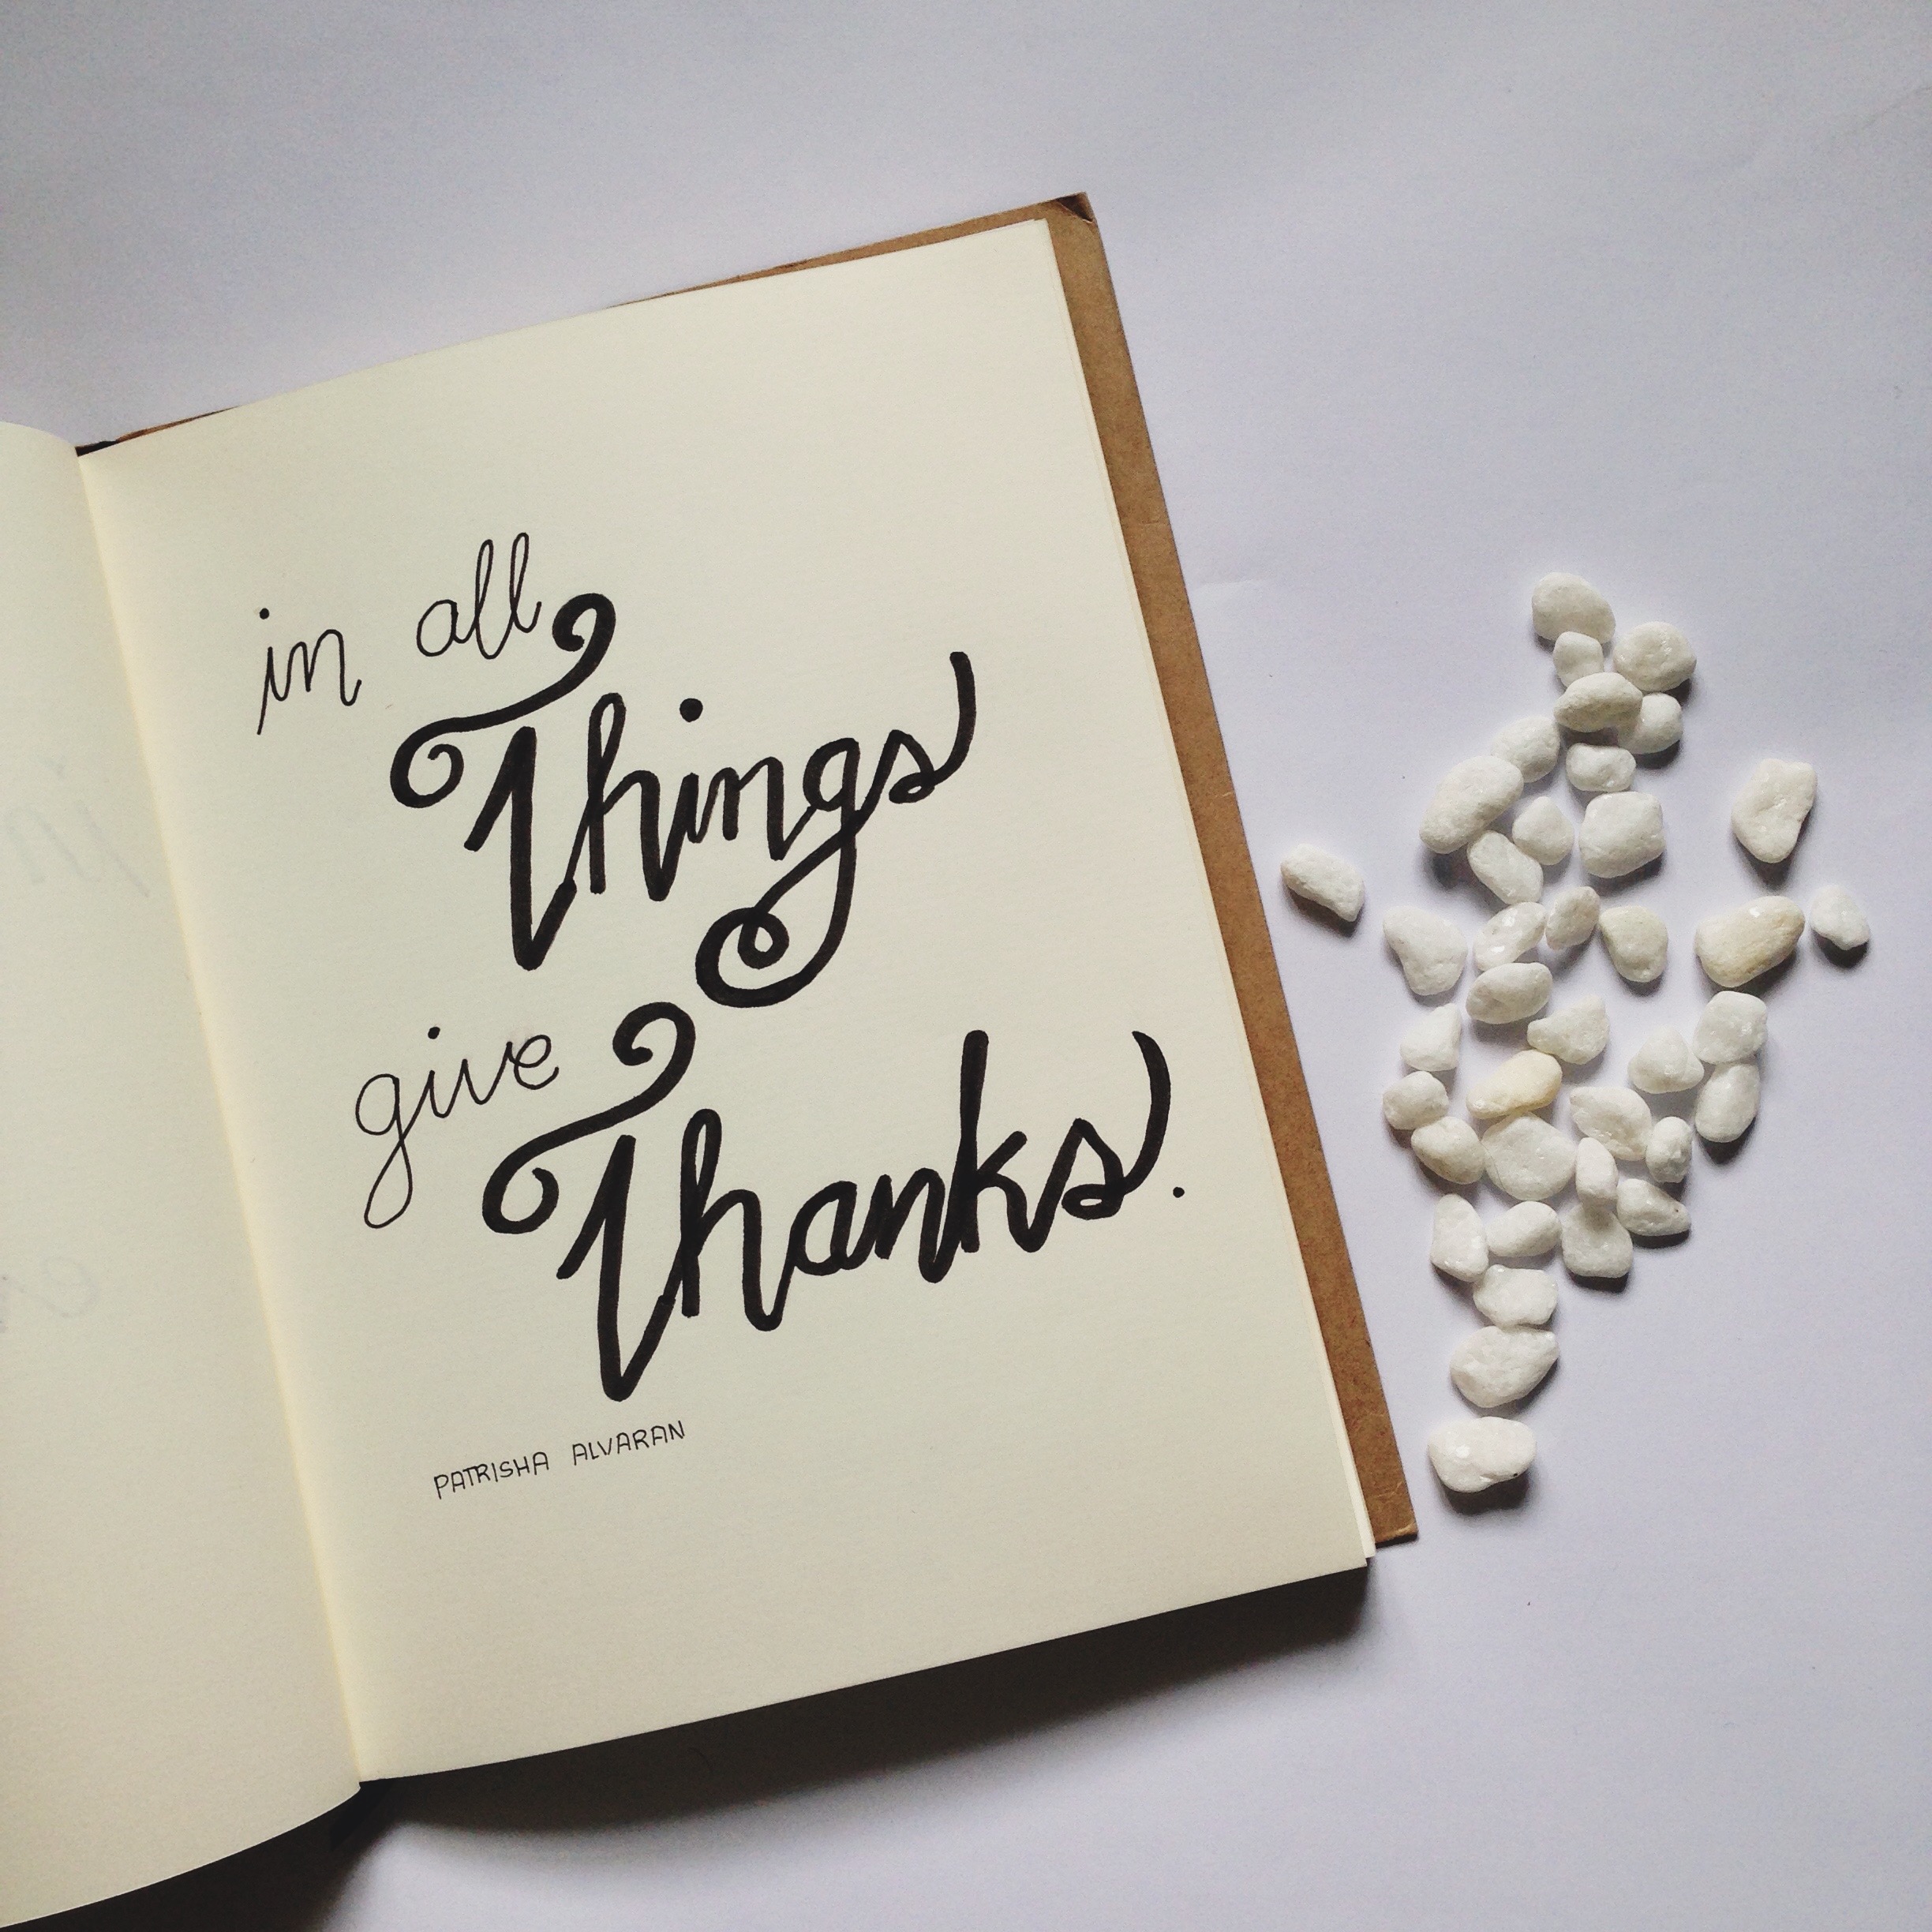 in all
Things
give
Thanks.
PATRISHA ALVARAN